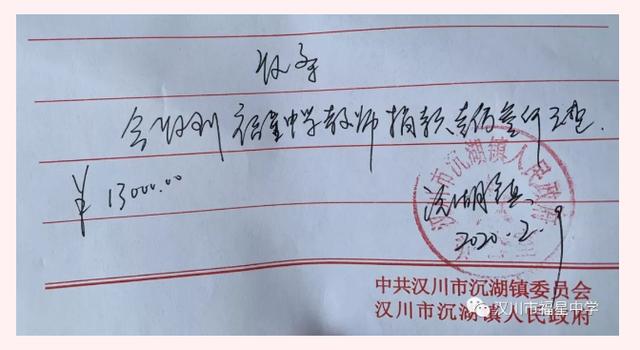 收条
今收到福星中学教师捐款壹万叁仟元整.
¥13000.00
汉川市沉湖镇人民政府
沉湖镇
2020.2.9
中共汉川市沉湖镇委员会
汉川市沉湖镇人民政府
汉川市福星中学